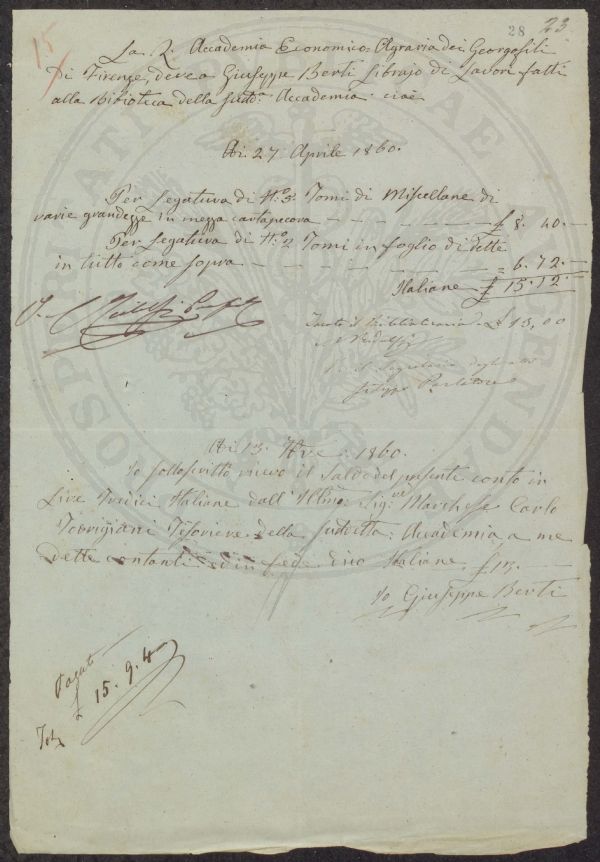 15
28
23
La R. Accademia Economico=Agraria dei Georgofili
di Firenze, deve a Giuseppe Berti Librajo di Lavori fatti
alla Biblioteca della Sudd.a Accademia cioè
Ai 27 Aprile 1860.
Per Legatura di N.o 3 Tomi di Miscellane di
varie grandezze in mezza cartapecora £ 8. 40.
Per Legatura di N.o 2 Tomi in foglio di dette
in tutto come sopra = 6. 72.
Italiane £ 15. 12.
£ 13,00
Filippo Parlatore
Ai 13 1860.
Io sottoscritto ricevo il Saldo del presente conto in
Lire Tredici Italiane dall' Illmo: Sig.re Marchese Carlo
Torrigiani Tisoriere della Sudetta: Accademia a me
dette contanti ed in fede dico Italiane £ 13.
Io Giuseppe Berti
Pagati
£ 15. 9. 4